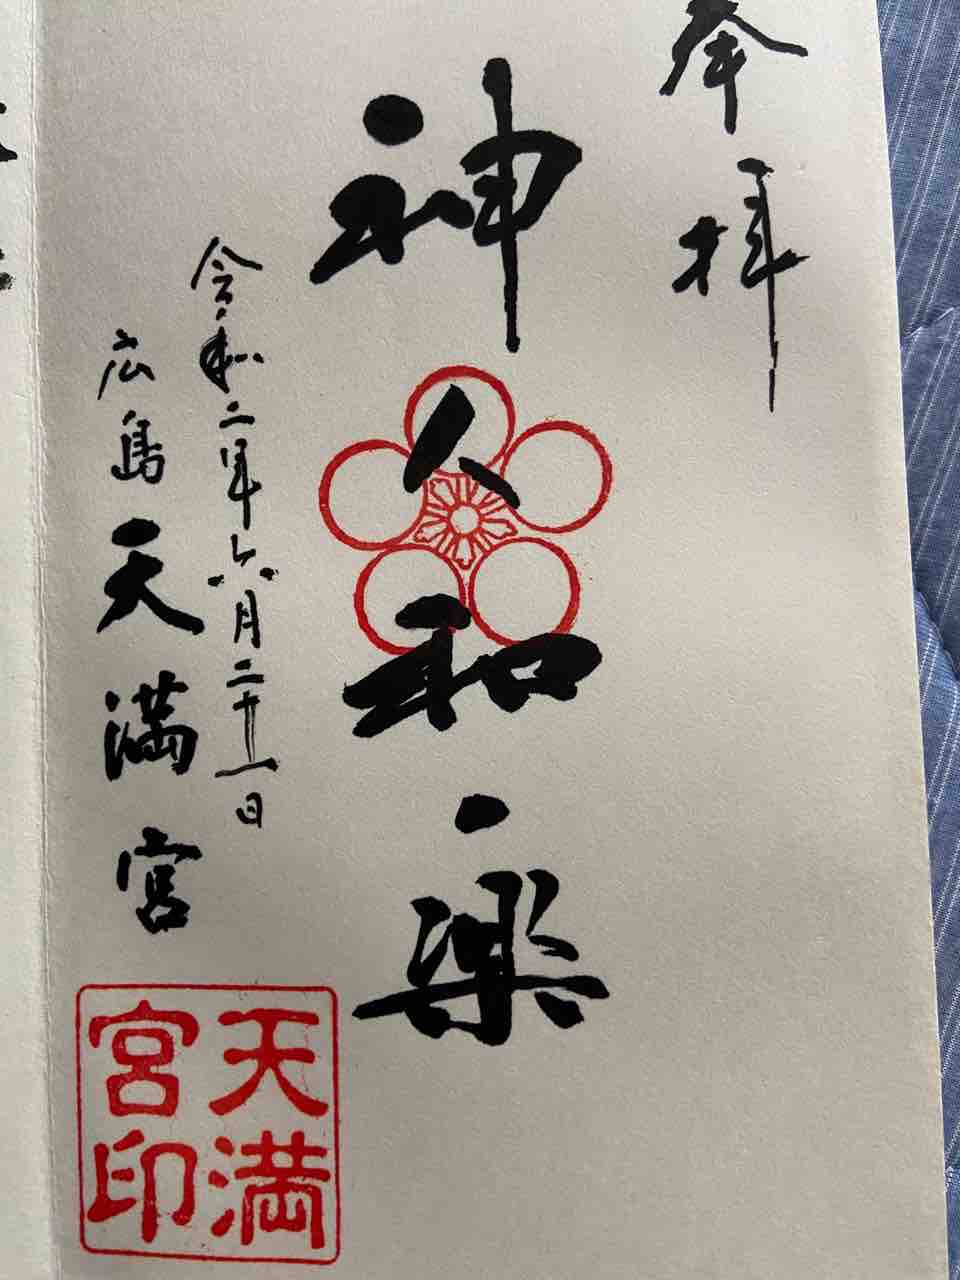 奉拝
神人和楽
令和二年六月二十一日
広島天満宮
天満
宮印